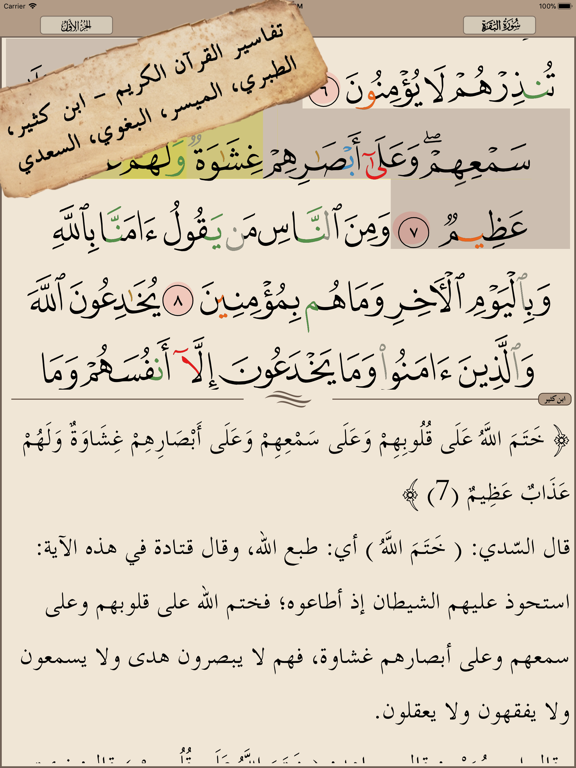 Carrier
100%
سُورَةُ البَقَرَةِ
الجزء الأول
تفاسير القرآن الكريم - ابن كثير،
الطبري، الميسر، البغوي، السعدي
تُنذِرْهُمْ لَا يُؤْمِنُونَ ٦
سَمْعِهِمْ ۖ وَعَلَىٰٓ أَبْصَـٰرِهِمْ غِشَـٰوَةٌ ۖ وَلَهُمْ
عَظِيمٌ ٧ وَمِنَ ٱلنَّاسِ مَن يَقُولُ ءَامَنَّا بِٱللَّهِ
وَبِٱلْيَوْمِ ٱلْـَٔاخِرِ وَمَا هُم بِمُؤْمِنِينَ ٨ يُخَـٰدِعُونَ ٱللَّهَ
وَٱلَّذِينَ ءَامَنُوا۟ وَمَا يَخْدَعُونَ إِلَّآ أَنفُسَهُمْ وَمَا
ابن كثير
﴿ خَتَمَ اللَّهُ عَلَى قُلُوبِهِمْ وَعَلَى سَمْعِهِمْ وَعَلَى أَبْصَارِهِمْ غِشَاوَةٌ وَلَهُمْ
عَذَابٌ عَظِيمٌ (7) ﴾
قال السّدي: ( خَتَمَ اللَّهُ ) أي: طبع الله، وقال قتادة في هذه الآية:
استحوذ عليهم الشيطان إذ أطاعوه؛ فختم الله على قلوبهم وعلى
سمعهم وعلى أبصارهم غشاوة، فهم لا يبصرون هدى ولا يسمعون
ولا يفقهون ولا يعقلون.